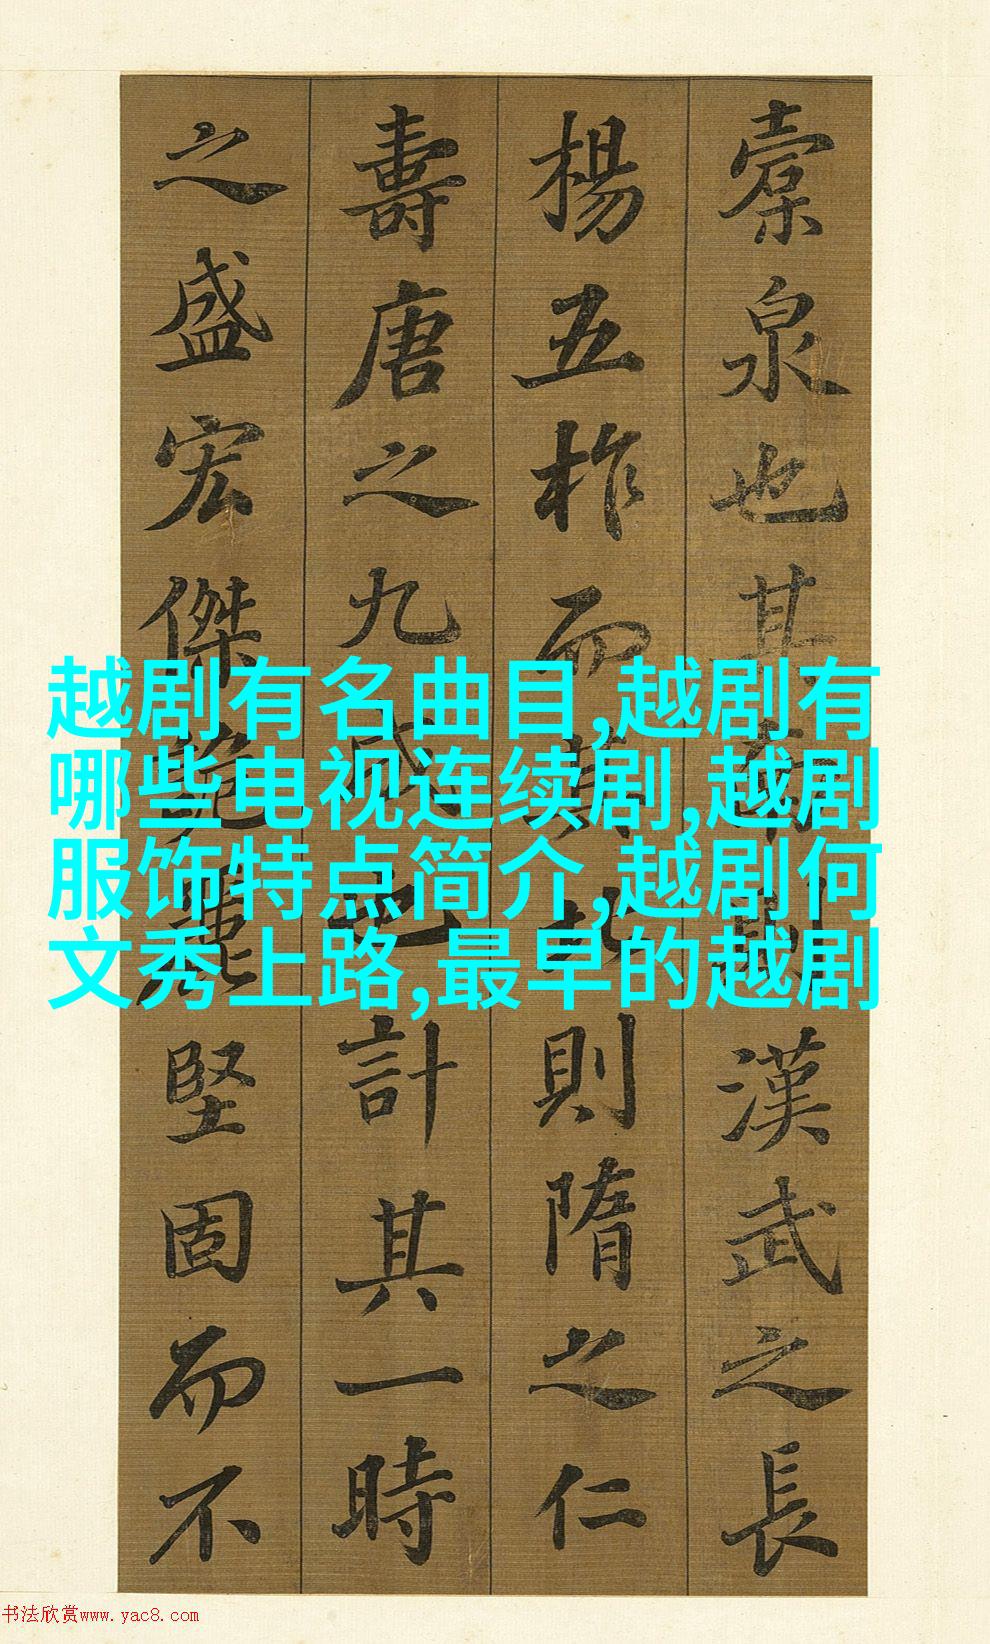 槖泉也其南則漢武之長
楊五柞而其北則隋之仁
壽唐之九成也計其一時
之盛宏傑詭麗堅固而不
越剧有名曲目,越剧有
哪些电视连续剧,越剧
服饰特点简介,越剧何
文秀上路,最早的越剧
书法欣赏www.yac8.com